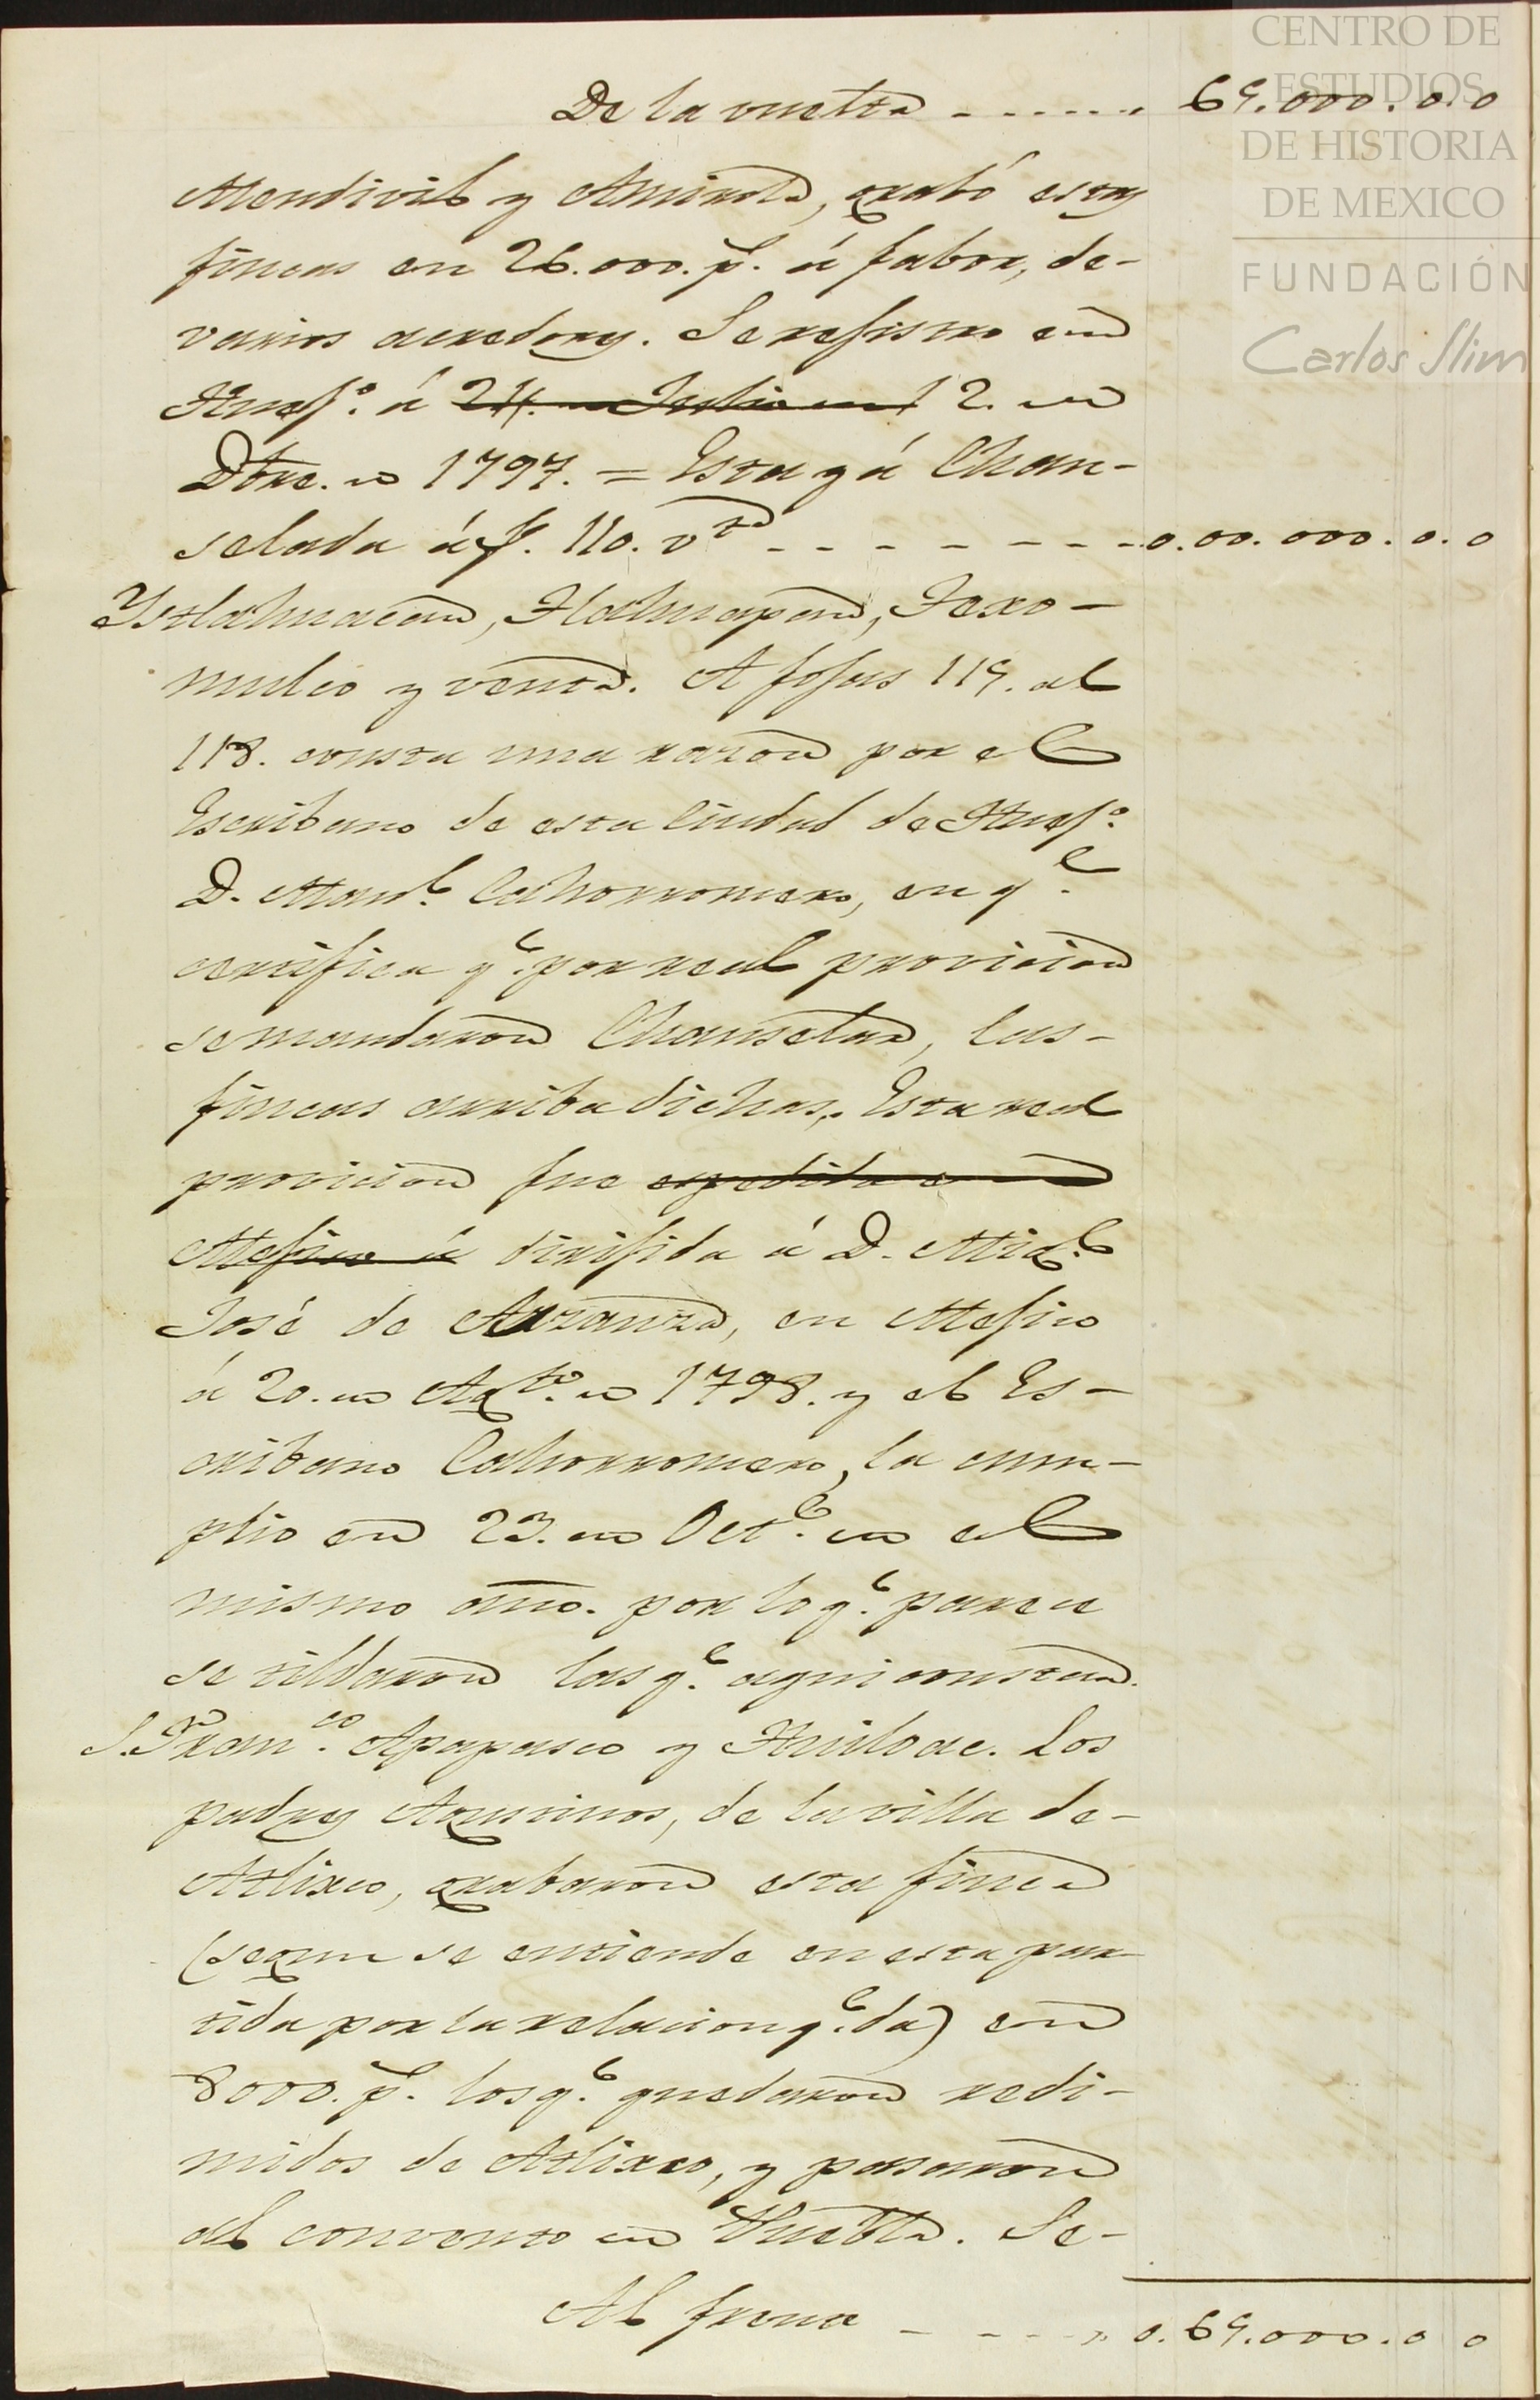 CENTRO DE
ESTUDIOS
DE HISTORIA
DE MEXICO
FUNDACIÓN
Carlos Slim
De la vuelta ------ 69.000.0.0
Mendivil y Amirola, grabó estas
fincas en 26.000.ps. á fabor, de-
varios acredores. Se rejistro en
Huejo. á ~~24. en Julio en 1~~ 2. en
Dbre. en 1797. = Esta yá Chan-
selada á f. 110. vta - - - - - - - 0.00.000.0.0
Ystlahuacan, Tlahuapan, Texo-
mulco y venta. A fojas 119. al
118. consta una razon por el
Escribano de esta Ciudad de Huejo.
D. Manl. Cahorromero, en qe.
certifica qe. por real provicion
se mandaron Chanselar, las-
fincas arriba dichas,. Esta real
provicion fue ~~espedida en~~
~~Mejico á~~ dirijida á D. Migl.
José de Azanza, en Mejico
á 20. en Agto. en 1798. y el Es-
cribano Cahorromero, la cum-
plio en 23. en Octe. en el
mismo año. por lo qe. parece
se tildaron las qe. aqui constan.
S. Franco. Apapasco y Huiloac. Los
padres Agustinos, de la villa de-
Atlixco, grabaron esta finca
(segun se entiende en esta par-
tida por la relacion qe. da) en
8000.ps. los qe. quedaron redi-
midos de Atlixco, y pasaron
al convento en Puebla. Se-
Al frente - - - - " 0.69.000.0 0